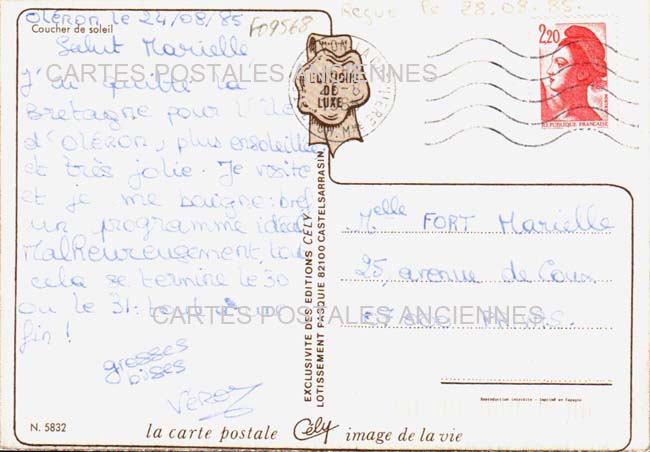 Oléron le 24/08/85
F09568
Reçue le 28.08.85.
Coucher de soleil
Salut Marielle
J'ai quitté la
Bretagne pour l'île
d'Oléron, plus ensoleillée
et très jolie. Je visite
et je me baigne: bref
un programme idéal
Malheureusement, tout
cela se termine le 30
ou le 31: tout a une
fin!
grosses
bises
VERO
N. 5832
EDITIONS
DE
LUXE
2,20
REPUBLIQUE FRANÇAISE
EXCLUSIVITE DES EDITIONS CELY
LOTISSEMENT PASQUIE 82100 CASTELSARRASIN
Melle FORT Marielle
25, avenue de
Reproduction interdite - Imprimé en Espagne
la carte postale Cély image de la vie
CARTES POSTALES ANCIENNES
CARTES POSTALES ANCIENNES